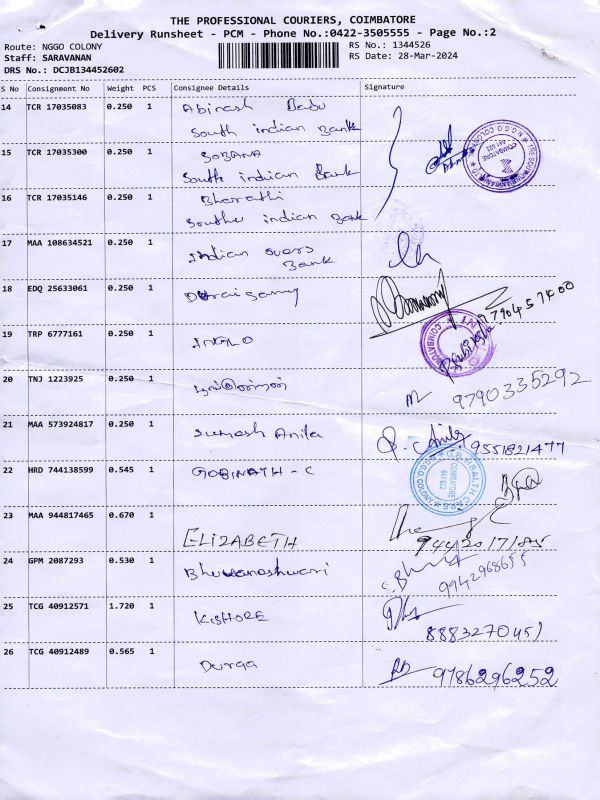 THE PROFESSIONAL COURIERS, COIMBATORE
Delivery Runsheet - PCM - Phone No.:0422-3505555 - Page No.:2
Route: NGGO COLONY
Staff: SARAVANAN
DRS No.: DCJB134452602
RS No.: 1344526
RS Date: 28-Mar-2024
S No Consignment No Weight PCS Consignee Details Signature
14 TCR 17035083 0.250 1 Abinash Babu
South indian Bank
15 TCR 17035300 0.250 1 SOBANA
South indian Bank
16 TCR 17035146 0.250 1 Bharathi
Southe indian Bank
17 MAA 108634521 0.250 1 indian overs
Bank
18 EDQ 25633061 0.250 1 Duraisamy
19 TRP 6777161 0.250 1
20 TNJ 1223925 0.250 1 9790335292
21 MAA 573924817 0.250 1 Sumash Anila 9551821477
22 HRD 744138599 0.545 1 GOBINATH - C
23 MAA 944817465 0.670 1 ELIZABETH
24 GPM 2087293 0.530 1 Bhuvaneshwari 9942968655
25 TCG 40912571 1.720 1 KISHORE
26 TCG 40912489 0.565 1 Durga 9786296252